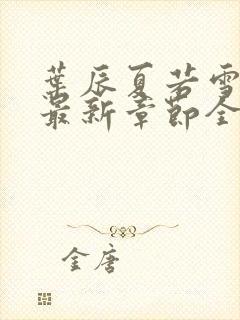 葉辰夏若雪
最新章節全
金唐